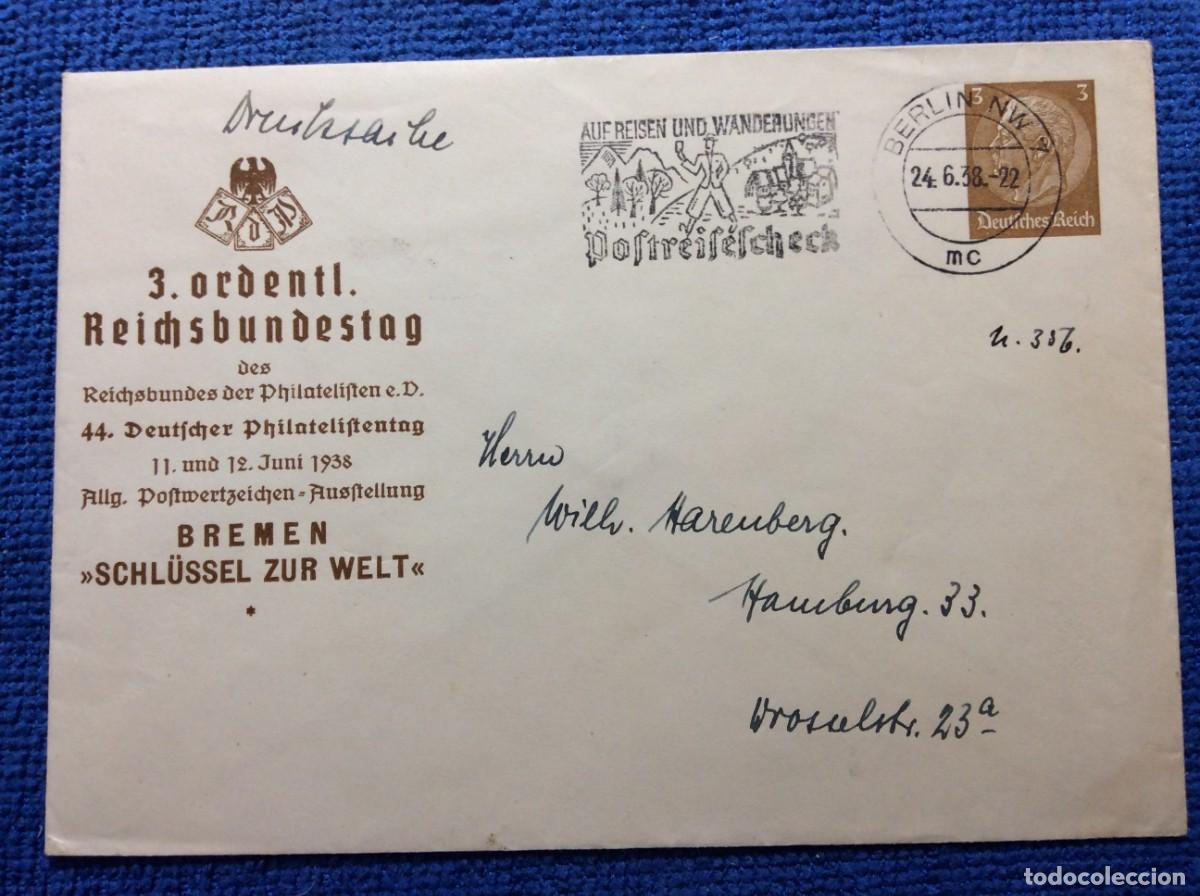 Drucksache
R d P
3. ordentl.
Reichsbundestag
des
Reichsbundes der Philatelisten e.V.
44. Deutscher Philatelistentag
11. und 12. Juni 1938
Allg. Postwertzeichen-Ausstellung
BREMEN
»SCHLÜSSEL ZUR WELT«
*
AUF REISEN UND WANDERUNGEN
Postreisescheck
BERLIN NW 7
24.6.38.-22
mc
3 3
Deutsches Reich
Herrn
Wilh. Harenberg.
Hamburg. 33.
Drosselstr. 23a
todocoleccion